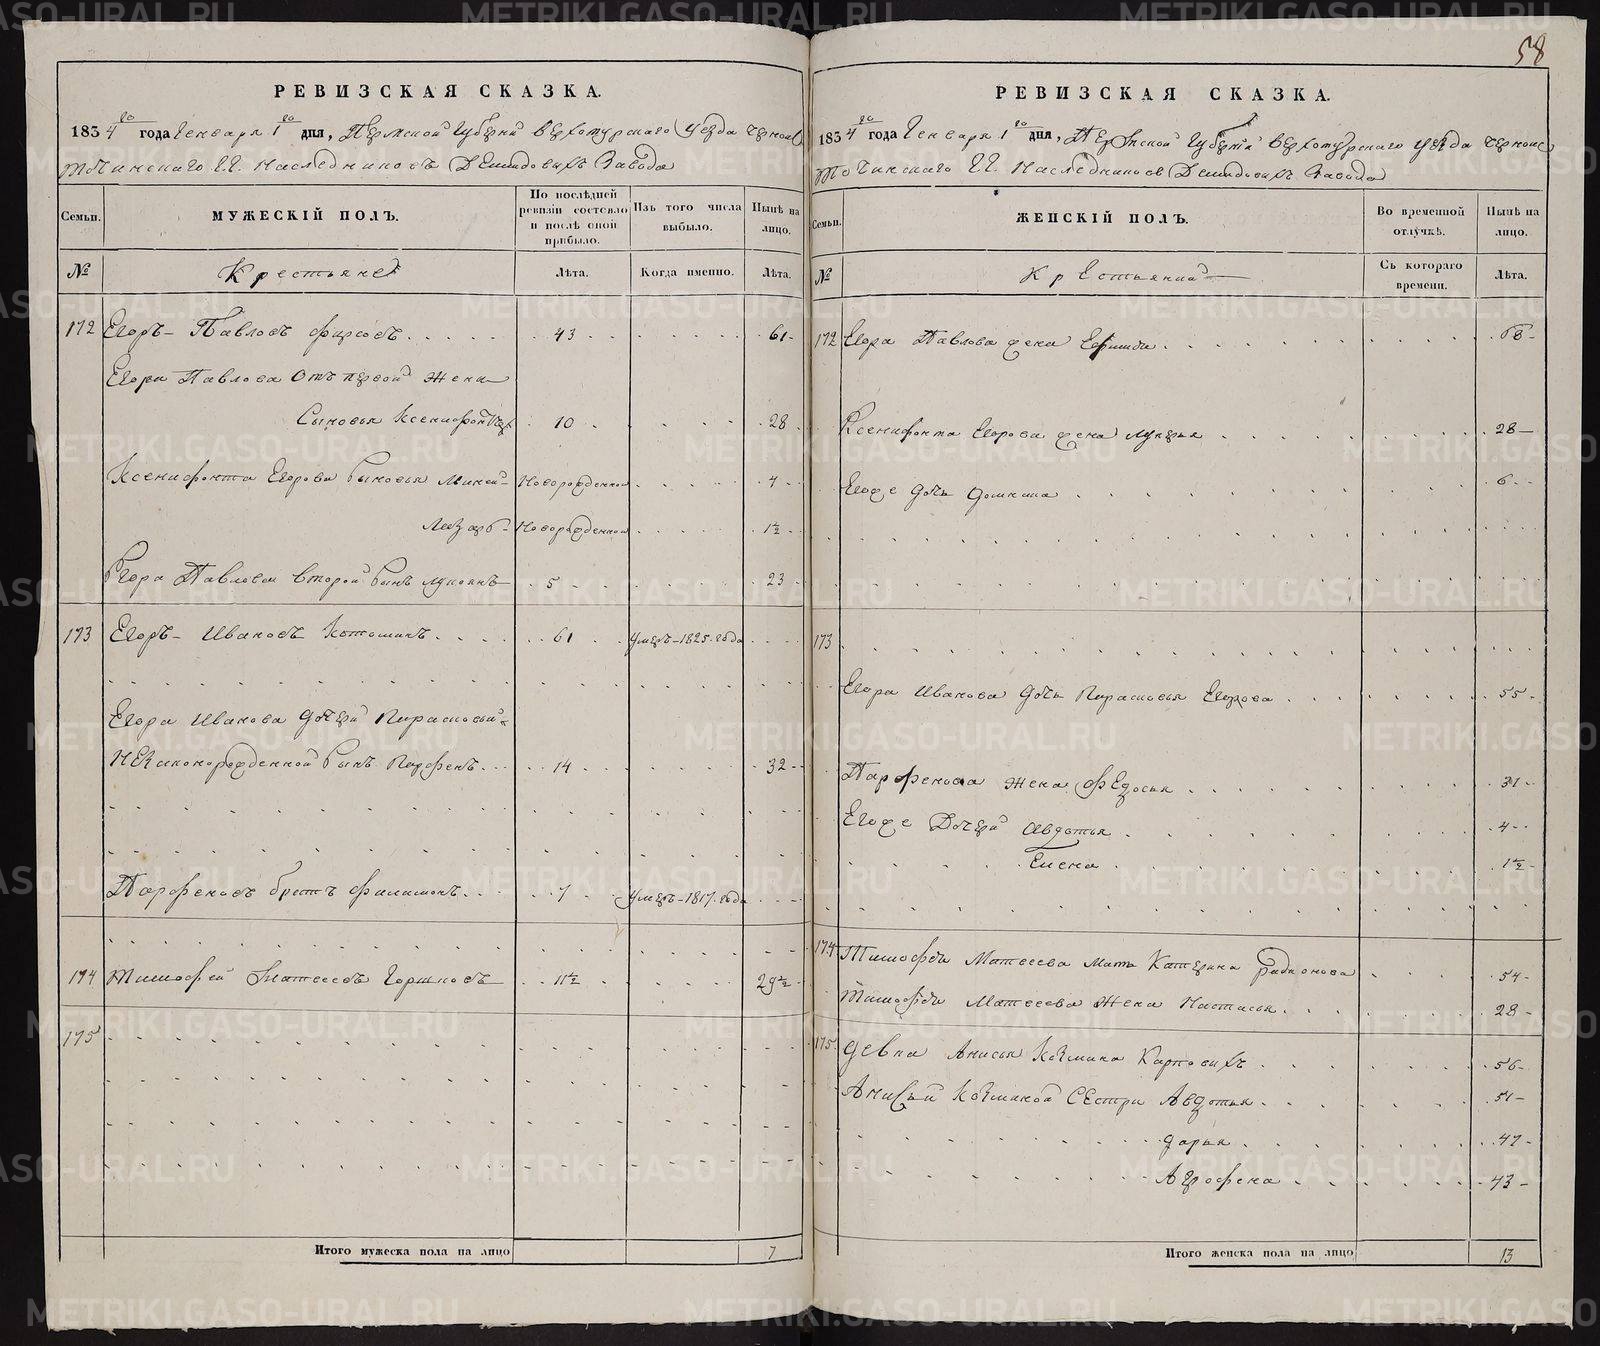 58
РЕВИЗСКАЯ СКАЗКА.
1834го года Генваря 1го дня, Пермской Губерни Верхотурского Уезда Черноис
точинского Г.Г. Наследниковъ Демидовыхъ Завода
Семьи.
МУЖЕСКІЙ ПОЛЪ.
По послѣдней ревизіи состояло и послѣ оной прибыло.
Изъ того числа выбыло.
Нынѣ на лицо.
№
Крестьяне
Лѣта.
Когда именно.
Лѣта.
172 Егоръ Павловъ Фирсовъ 43 61
Егора Павлова Отъ первой жены
Сыновья Ксенофонтъ 10 28
Ксенофонта Егорова Сыновья Миней Новорожденной 4
Лазарь Новорожденной 1½
Егора Павлова второй Сынъ Лукоянъ 5 23
173 Егоръ Ивановъ Котошинъ 61 Умеръ 1825 года
Егора Иванова дочери Парасковьи
Незаконорожденной Сынъ Парфенъ 14 32
Парфеновъ братъ Филимонъ 7 Умеръ 1817 года
174 Тимофей Матвеевъ Горшковъ 11½ 29½
175
Итого мужеска пола на лицо 7
РЕВИЗСКАЯ СКАЗКА.
1834го года Генваря 1го дня, Пермской Губерни Верхотурского уезда Черноис
точинского Г.Г. Наследниковъ Демидовыхъ Завода
Семьи.
ЖЕНСКІЙ ПОЛЪ.
Во временной отлучкѣ.
Нынѣ на лицо.
№
Крестьянки
Съ котораго времени.
Лѣта.
172 Егора Павлова жена 58
Ксенофонта Егорова жена Лукерья 28
Егоже дочь Домнина 6
173
Егора Иванова дочь Парасковья Егорова 55
Парфенова жена Федосья 31
Егоже Дочери Авдотья 4
Елена 1½
174 Тимофея Матвеева мать Катерина Радионова 54
Тимофея Матвеева жена Настасья 28
175 девка Анисья Козмина Карповыхъ 56
Анисьи Козминой Сестры Авдотья 51
Дарья 47
Агрофена 43
Итого женска пола на лицо 13
METRIKI.GASO-URAL.RU